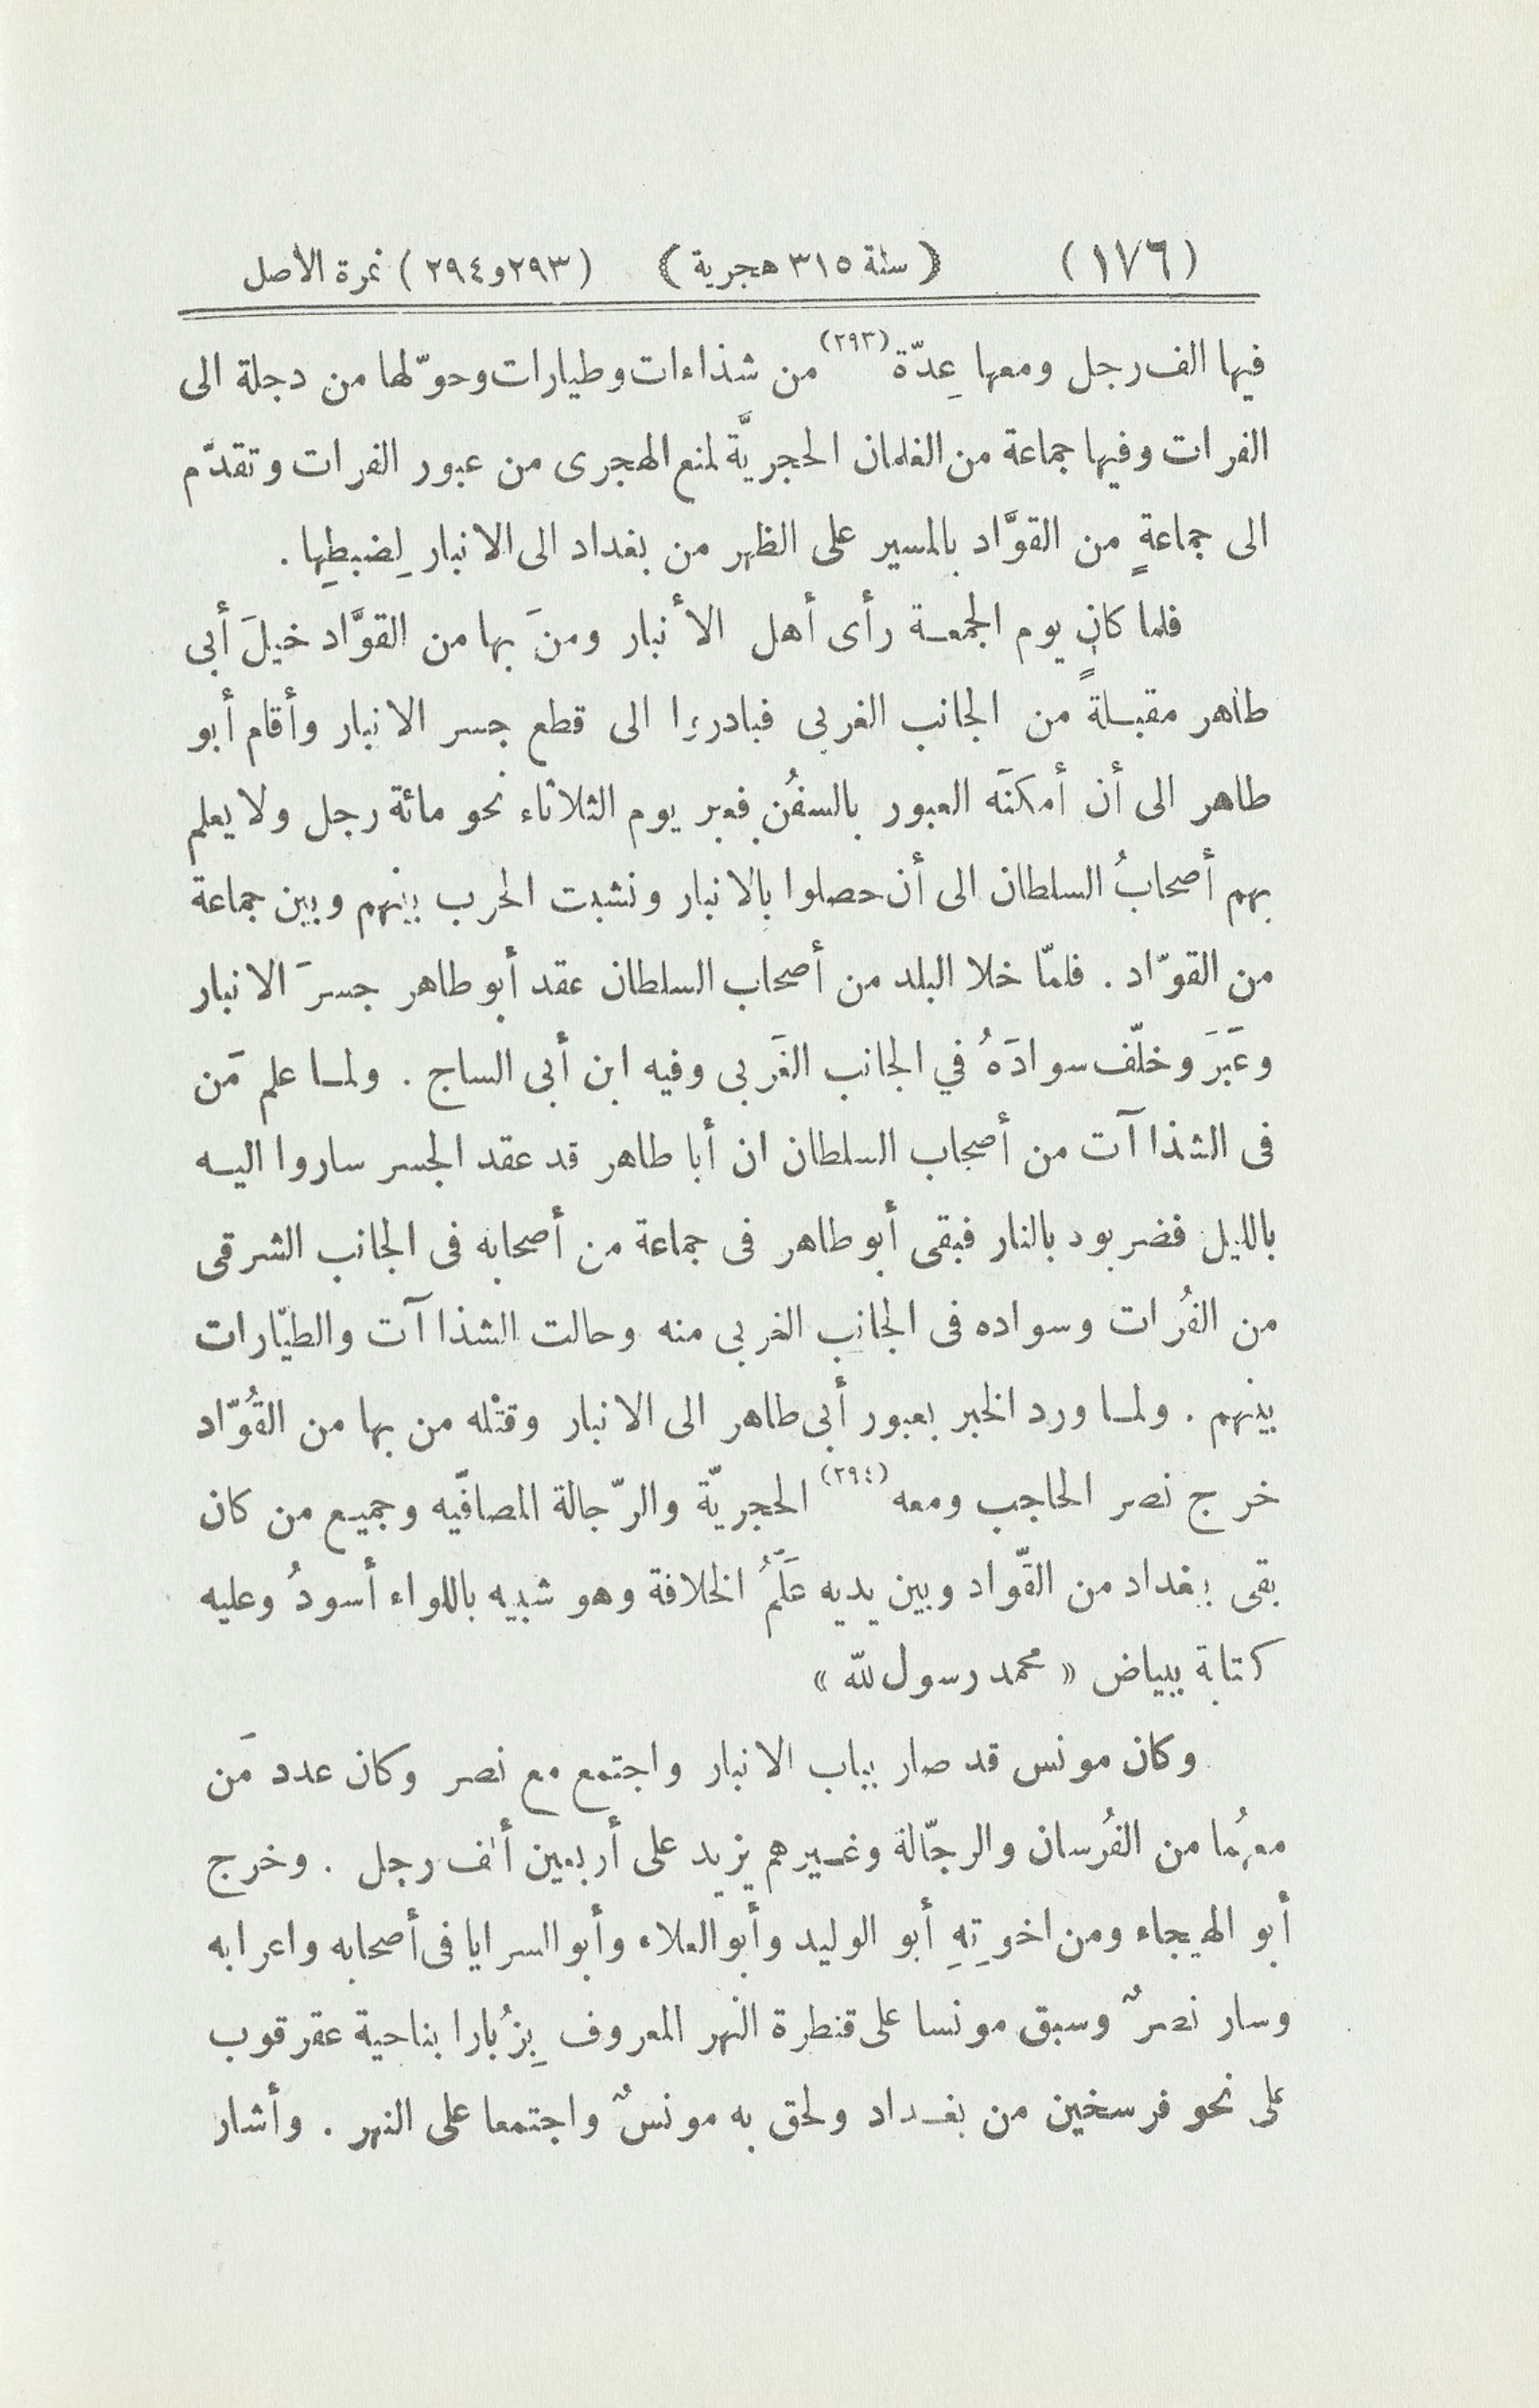 (١٧٦) (سنة ٣١٥ هجرية) (٢٩٣ و٢٩٤) نمرة الاصل
فيها الف رجل ومعها عِدّة (٢٩٣) من شذاءات وطيارات وحوّلها من دجلة الى
الفرات وفيها جماعة من الغلمان الحجريَّة لمنع الهجرى من عبور الفرات وتقدّم
الى جماعةٍ من القوَّاد بالمسير على الظهر من بغداد الى الانبار لِضبطِها .
فلما كان يوم الجمعة رأى أهل الأنبار ومنَ بها من القوَّاد خيلَ أبى
طاهر مقبلةً من الجانب الغربى فبادروا الى قطع جسر الانبار وأقام أبو
طاهر الى أن أمكنَه العبور بالسفُن فعبر يوم الثلاثاء نحو مائة رجل ولا يعلم
بهم أصحابُ السلطان الى أن حصلوا بالانبار ونشبت الحرب بينهم وبين جماعة
من القوّاد . فلمّا خلا البلد من أصحاب السلطان عقد أبو طاهر جسرَ الانبار
وعَبَرَ وخلّف سوادَهُ في الجانب الغَربى وفيه ابن أبى الساج . ولما علم مَن
فى الشذاآت من أصحاب السلطان ان أبا طاهر قد عقد الجسر ساروا اليه
بالليل فضربوه بالنار فبقى أبو طاهر فى جماعة من أصحابه فى الجانب الشرقى
من الفُرات وسواده فى الجانب الغربى منه وحالت الشذاآت والطيّارات
بينهم . ولما ورد الخبر بعبور أبى طاهر الى الانبار وقتْله من بها من القُوّاد
خرج نصر الحاجب ومعه (٢٩٤) الحجريّة والرّجالة المصافّيه وجميع من كان
بقى ببغداد من القّواد وبين يديه عَلَمُ الخلافة وهو شبيه باللواء أسودُ وعليه
كتابة ببياض « محمد رسول لله »
وكان مونس قد صار بباب الانبار واجتمع مع نصر وكان عدد مَن
معهُما من الفُرسان والرجّالة وغيرهم يزيد على أربعين ألف رجل . وخرج
أبو الهيجاء ومن اخوتِهِ أبو الوليد وأبو العلاء وأبو السرايا فى أصحابه واعرابه
وسار نصرٌ وسبق مونسا على قنطرة النهر المعروف بِزُبارا بناحية عقرقوب
على نحو فرسخين من بغداد ولحق به مونسٌ واجتمعا على النهر . وأشار